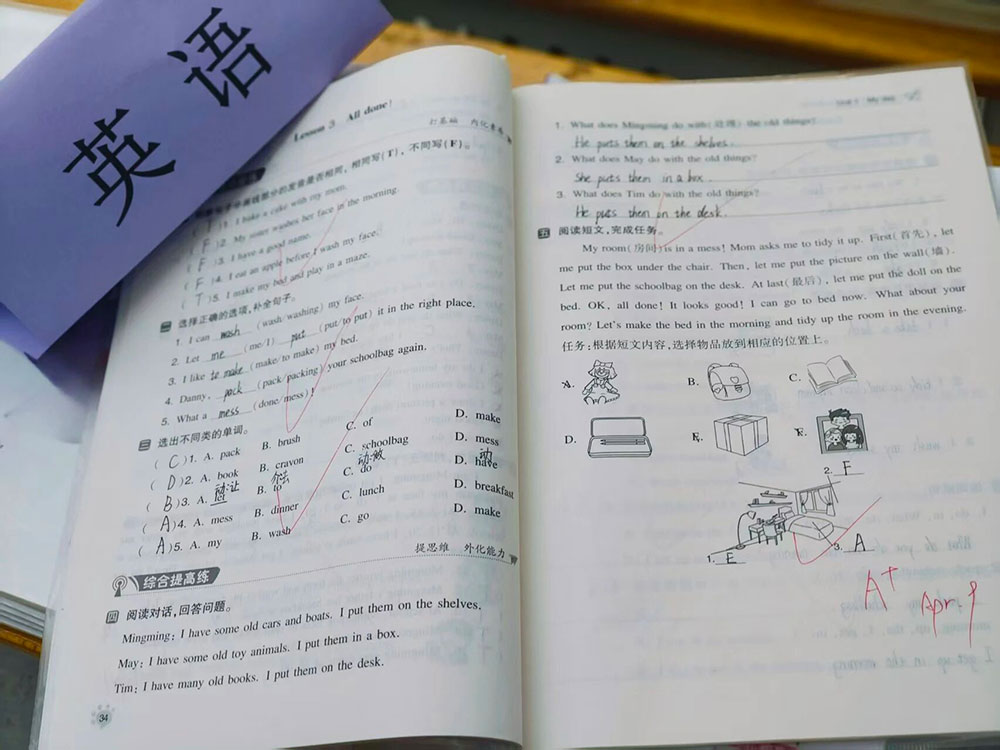 英语
Lesson 3 All done!
打基础 内化素养
句子中画线部分的发音是否相同，相同写(T)，不同写(F)。
( T )1. I bake a cake with my mom.
( F )2. My sister washes her face in the morning.
( F )3. I have a good name.
( F )4. I eat an apple before I wash my face.
( T )5. I make my bed and play in a maze.
二 选择正确的选项，补全句子。
1. I can wash (wash/washing) my face.
2. Let me (me/I) put (put/to put) it in the right place.
3. I like to make (make/to make) my bed.
4. Danny, pack (pack/packing) your schoolbag again.
5. What a mess (done/mess)!
三 选出不同类的单词。
( C )1. A. pack B. brush C. of D. make
( D )2. A. book B. crayon C. schoolbag D. mess
动:让 介:去 动:做 动
( B )3. A. let B. to C. do D. have
( A )4. A. mess B. dinner C. lunch D. breakfast
( A )5. A. my B. wash C. go D. make
提思维 外化能力
综合提高练
四 阅读对话，回答问题。
Mingming: I have some old cars and boats. I put them on the shelves.
May: I have some old toy animals. I put them in a box.
Tim: I have many old books. I put them on the desk.
34
1. What does Mingming do with(处理) the old things?
He puts them on the shelves.
2. What does May do with the old things?
She puts them in a box.
3. What does Tim do with the old things?
He puts them on the desk.
五 阅读短文，完成任务。
My room(房间) is in a mess! Mom asks me to tidy it up. First(首先), let
me put the box under the chair. Then, let me put the picture on the wall(墙).
Let me put the schoolbag on the desk. At last(最后), let me put the doll on the
bed. OK, all done! It looks good! I can go to bed now. What about your
room? Let's make the bed in the morning and tidy up the room in the evening.
任务:根据短文内容，选择物品放到相应的位置上。
A. B. C.
D. E. F.
2. F
1. E 3. A
A+
Apr 9